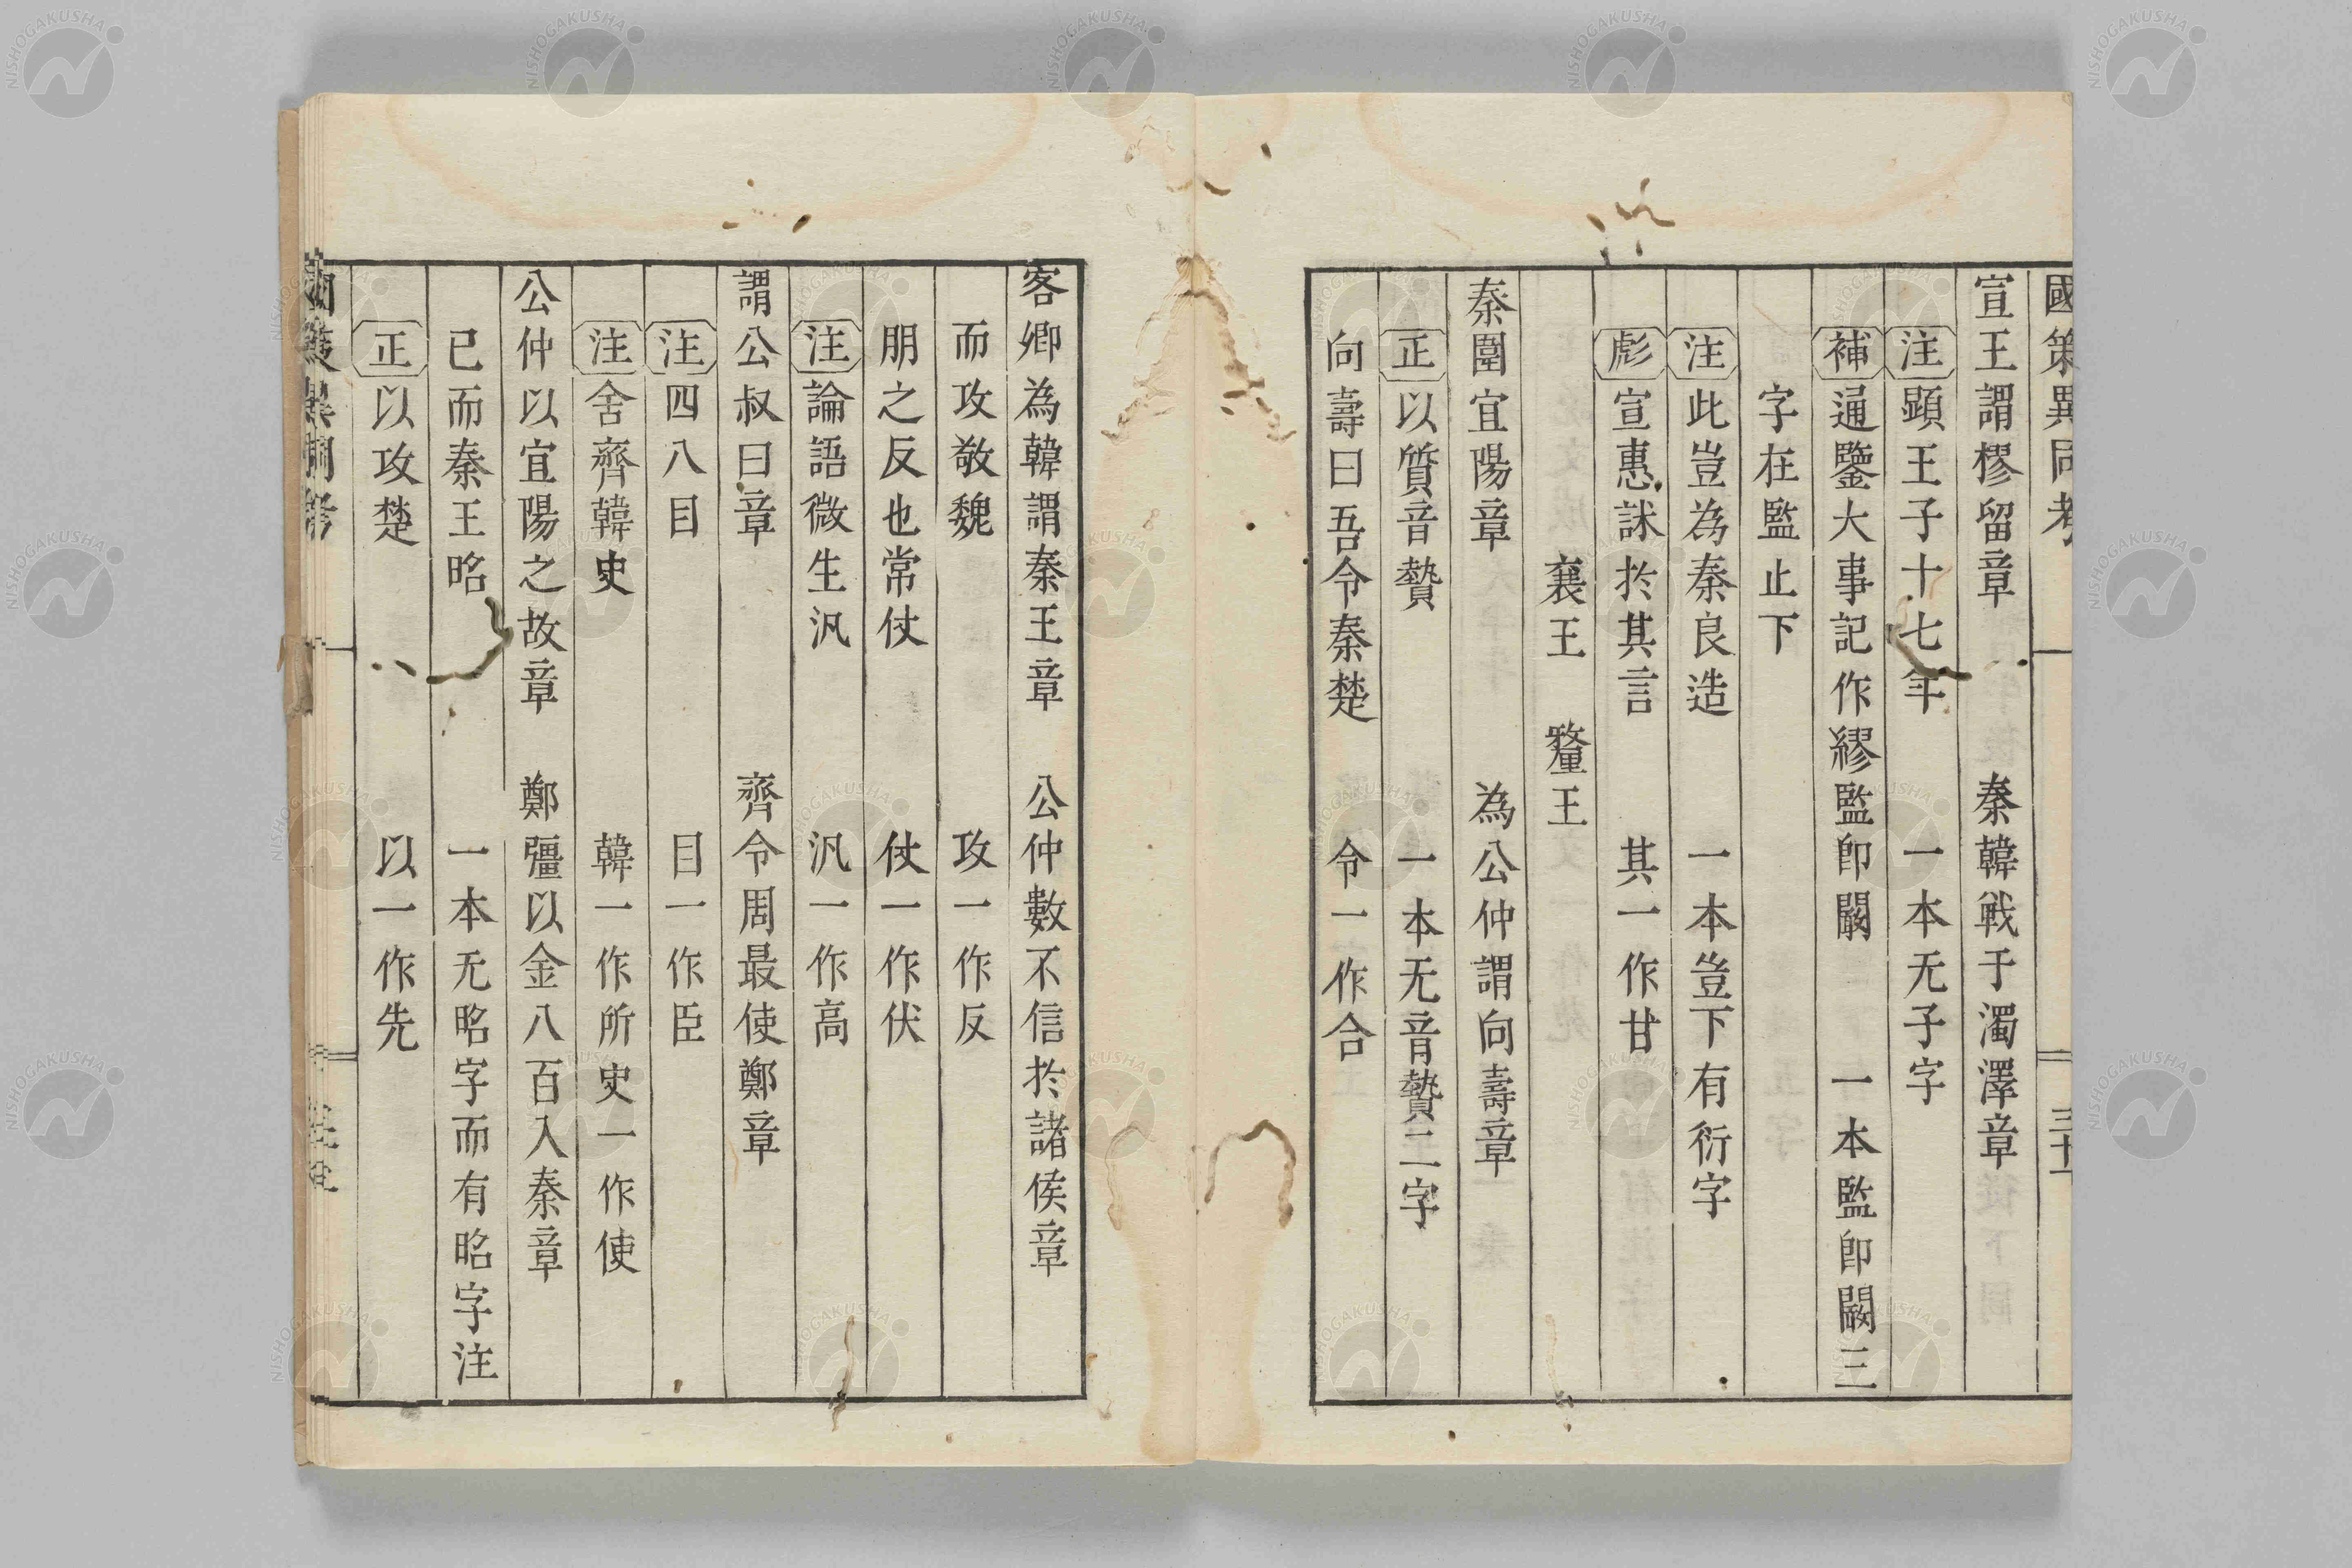 國策異同考 三十
宣王謂樛留章 秦韓戰于濁澤章
注 顯王子十七年 一本无子字
補 通鑒大事記作繆監卽闞 一本監卽闞三
字在監止下
注 此豈為秦良造 一本豈下有衍字
彪 宣惠訹於其言 其一作甘
襄王 釐王
秦圍宜陽章 為公仲謂向壽章
正 以質音贄 一本无音贄二字
向壽曰吾令秦楚 令一作合
客卿為韓謂秦王章 公仲數不信於諸侯章
而攻敬魏 攻一作反
朋之反也常仗 仗一作伏
注 論語微生汎 汎一作高
謂公叔曰章 齊令周最使鄭章
注 四八目 目一作臣
注 舍齊韓史 韓一作所史一作使
公仲以宜陽之故章 鄭彊以金八百入秦章
已而秦王昭 一本无昭字而有昭字注
正 以攻楚 以一作先
NISHOGAKUSHA